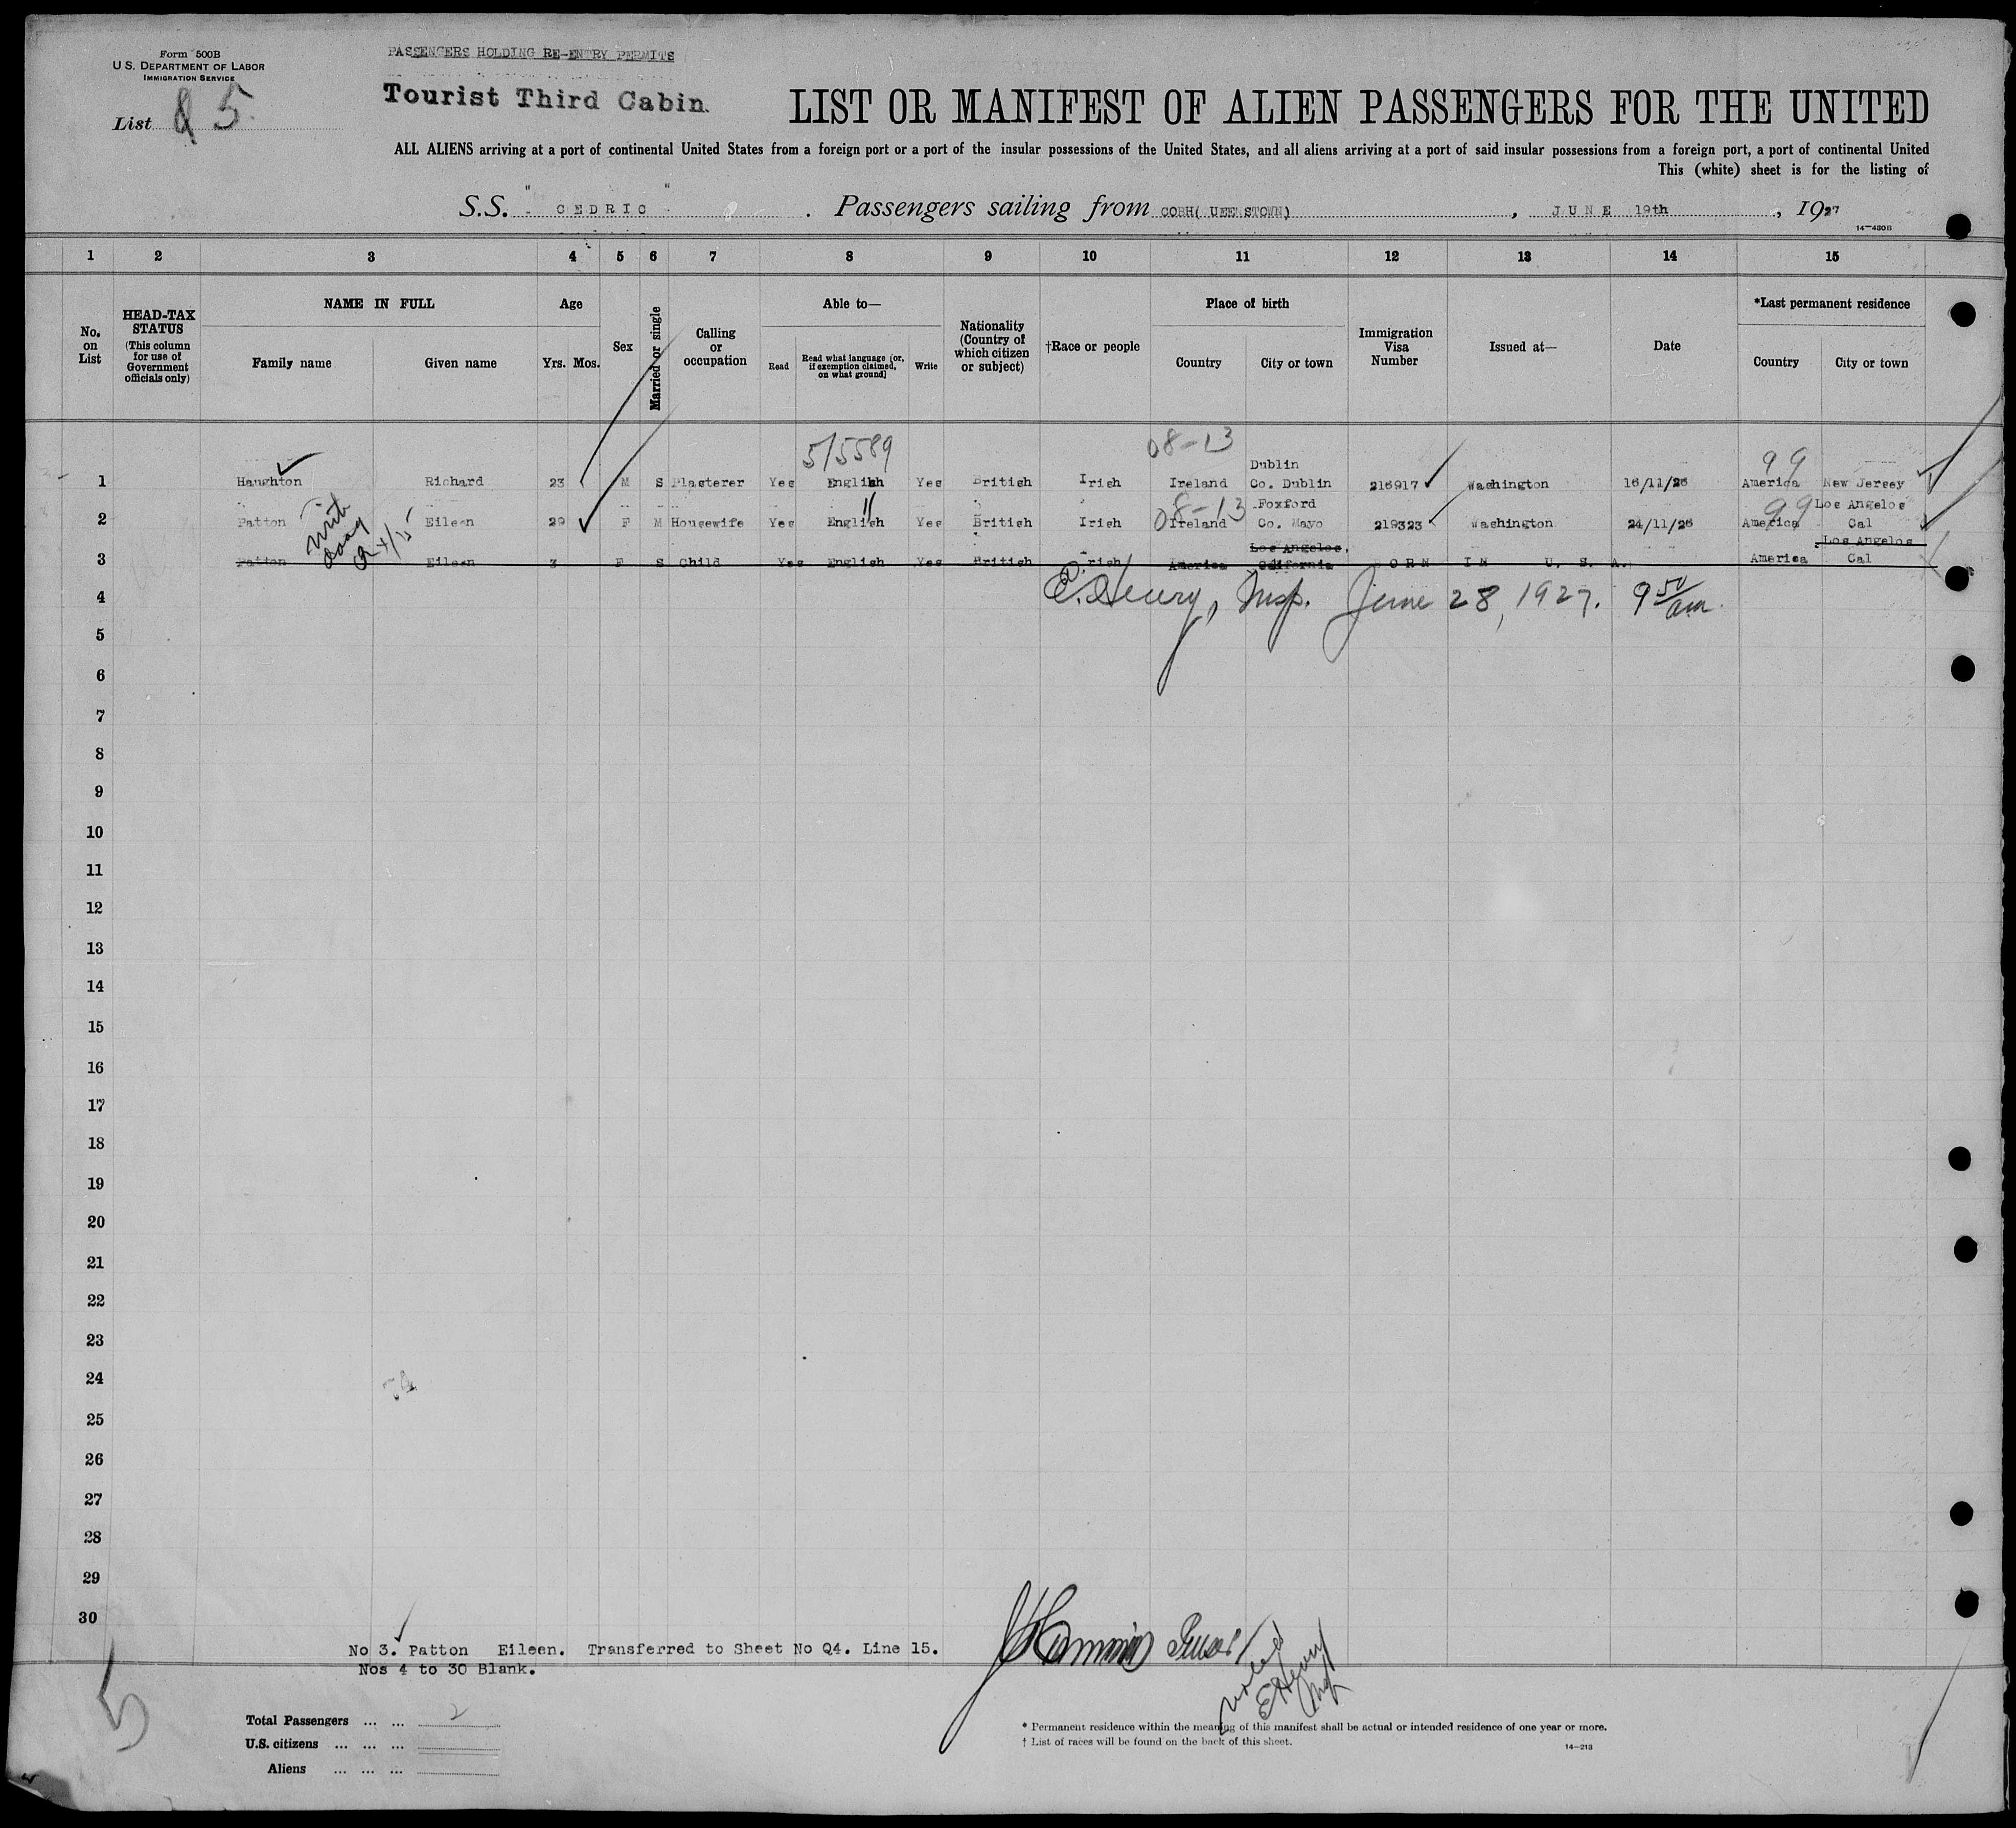 Form 500B
U.S. DEPARTMENT OF LABOR
IMMIGRATION SERVICE
PASSENGERS HOLDING RE-ENTRY PERMITS
Tourist Third Cabin.
List 5
LIST OR MANIFEST OF ALIEN PASSENGERS FOR THE UNITED
ALL ALIENS arriving at a port of continental United States from a foreign port or a port of the insular possessions of the United States, and all aliens arriving at a port of said insular possessions from a foreign port, a port of continental United
This (white) sheet is for the listing of
S.S. " CEDRIC " . Passengers sailing from COBH( UEENSTOWN) , JUNE 19th , 1927
14—430B
1 2 3 4 5 6 7 8 9 10 11 12 13 14 15
No. on List
HEAD-TAX STATUS (This column for use of Government officials only)
NAME IN FULL
Family name Given name
Age
Yrs. Mos.
Sex
Married or single
Calling or occupation
Able to—
Read Read what language [or, if exemption claimed, on what ground] Write
Nationality (Country of which citizen or subject)
†Race or people
Place of birth
Country City or town
Immigration Visa Number
Issued at—
Date
*Last permanent residence
Country City or town
5/5589 08-13 99
Dublin
1 Haughton Richard 23 M S Plasterer Yes English Yes British Irish Ireland Co. Dublin 216917 Washington 16/11/26 America New Jersey
" 08-13 Foxford 99 Los Angelos
2 Patton Eileen 29 F M Housewife Yes English Yes British Irish Ireland Co. Mayo 219323 Washington 24/11/26 America Cal
Los Angelos, Los Angelos
3 Patton Eileen 3 F S Child Yes English Yes British Irish America California BORN IN U. S. A. America Cal
4 E. Henry, Insp. June 28, 1927. 9 50 am.
5
6
7
8
9
10
11
12
13
14
15
16
17
18
19
20
21
22
23
24
25
26
27
28
29
30
No 3. Patton Eileen. Transferred to Sheet No Q4. Line 15.
Nos 4 to 30 Blank.
Purser
E Henry
Insp
5
Total Passengers ... ... 2
U.S. citizens ... ... ...
Aliens ... ... ...
* Permanent residence within the meaning of this manifest shall be actual or intended residence of one year or more.
† List of races will be found on the back of this sheet.
14—213